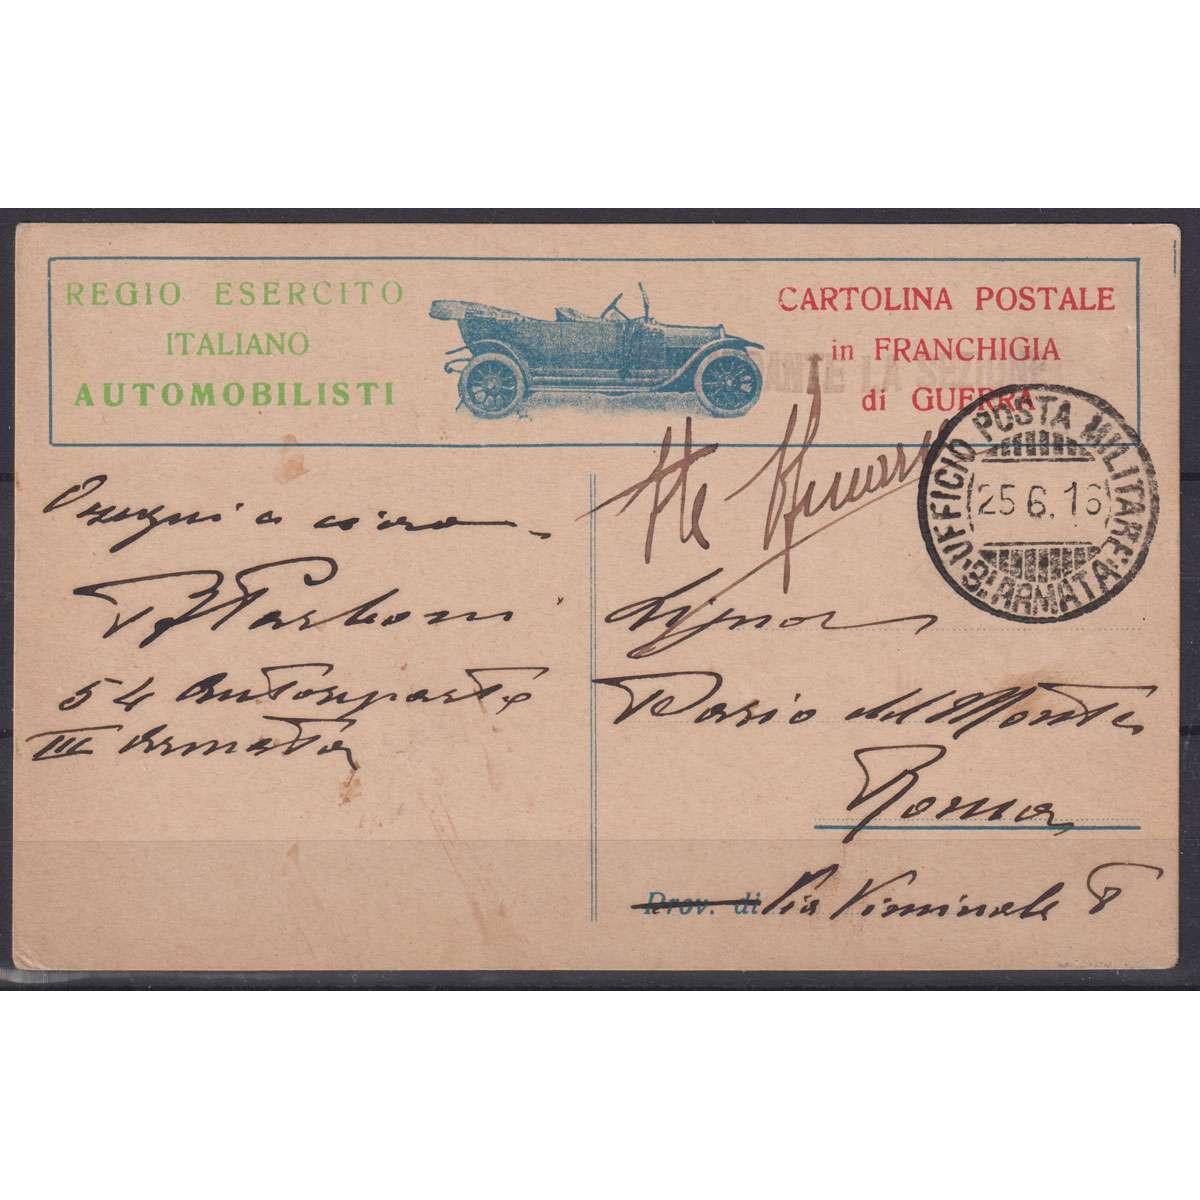 REGIO ESERCITO
ITALIANO
AUTOMOBILISTI
CARTOLINA POSTALE
in FRANCHIGIA
di GUERRA
UFFICIO POSTA MILITARE
25 6. 16
3ª ARMATA
Ossequi a
54 Autoreparto
III Armata
Signor
Dario del Monte
Roma
Prov. di Via Viminale 8